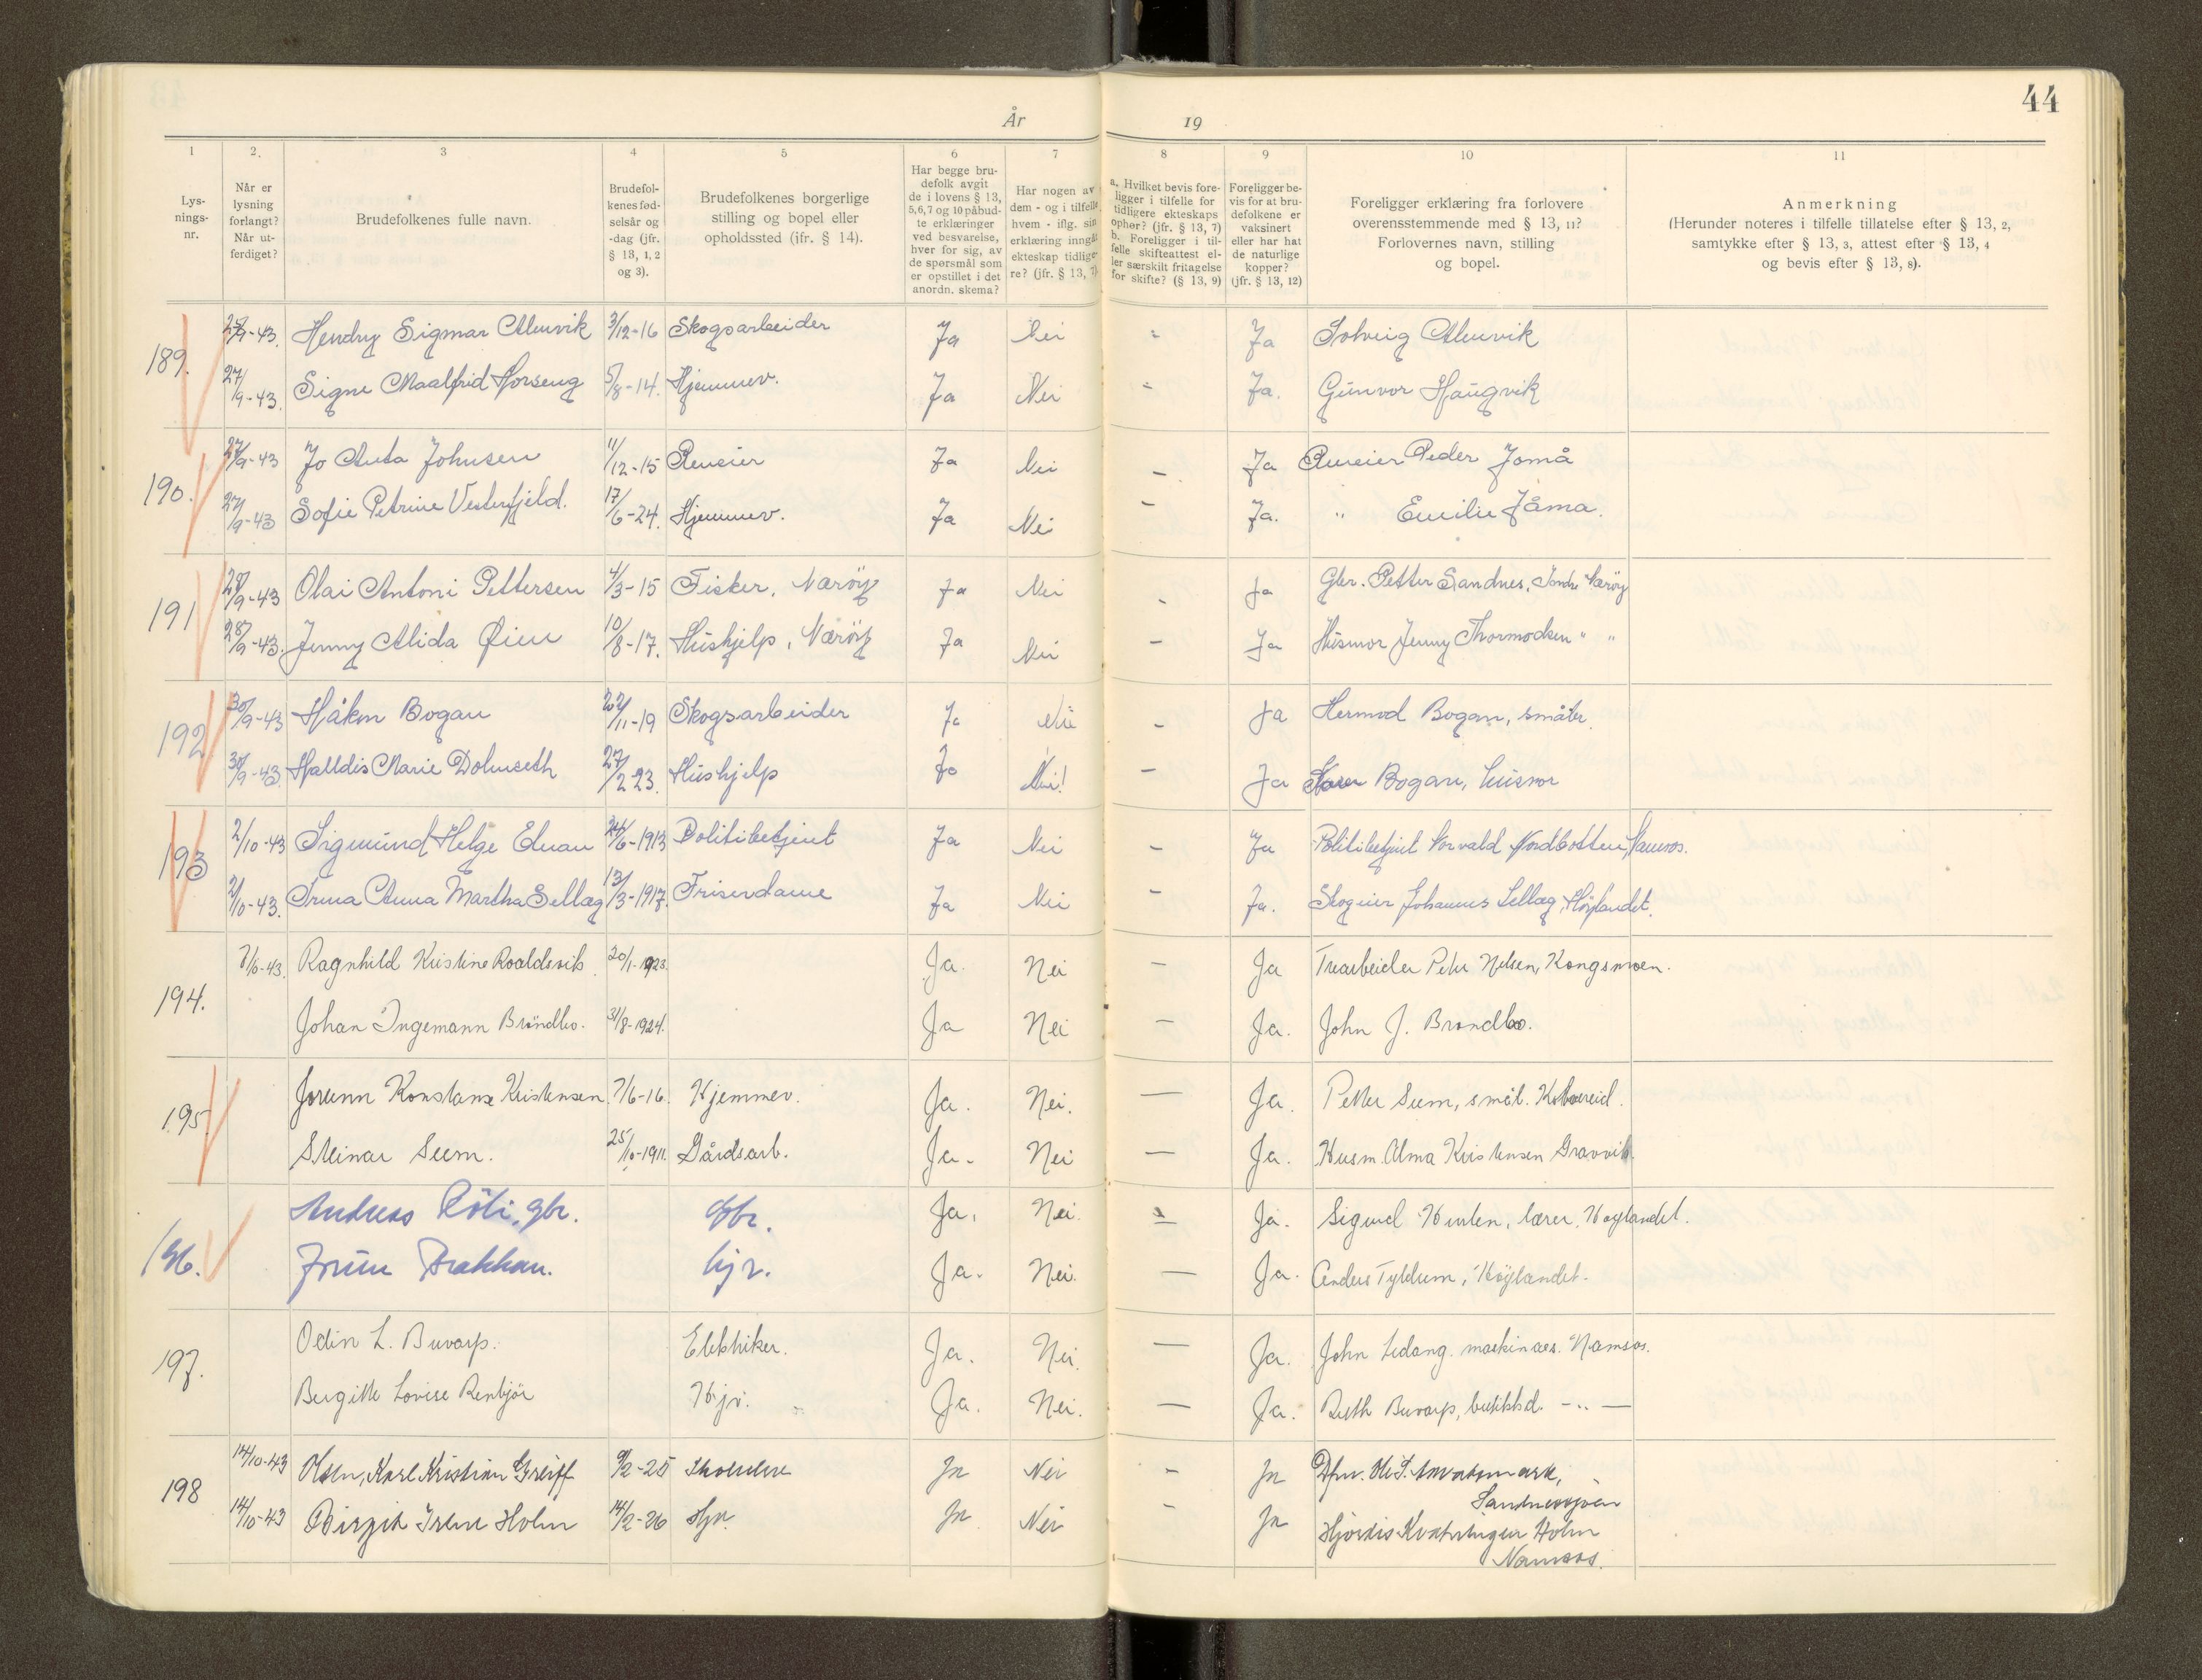 44
År 19
1 2. 3 4 5 6 7 8 9 10 11
Lys-
nings-
nr.
Når er
lysning
forlangt?
Når ut-
ferdiget?
Brudefolkenes fulle navn.
Brudefol-
kenes fød-
selsår og
-dag (jfr.
§ 13, 1, 2
og 3).
Brudefolkenes borgerlige
stilling og bopel eller
opholdssted (ifr. § 14).
Har begge bru-
defolk avgit
de i lovens § 13,
5,6,7 og 10 påbud-
te erklæringer
ved besvarelse,
hver for sig, av
de spørsmål som
er opstillet i det
anordn. skema?
Har nogen av
dem - og i tilfelle
hvem - iflg. sin
erklæring inngåt
ekteskap tidlige-
re? (jfr. § 13, 7)
a. Hvilket bevis fore-
ligger i tilfelle for
tidligere ekteskaps
ophør? (jfr. § 13, 7)
b. Foreligger i til-
felle skifteattest el-
ler særskilt fritagelse
for skifte? (§ 13, 9)
Foreligger be-
vis for at bru-
defolkene er
vaksinert
eller har hat
de naturlige
kopper?
(jfr. § 13, 12)
Foreligger erklæring fra forlovere
overensstemmende med § 13, 11?
Forlovernes navn, stilling
og bopel.
Anmerkning
(Herunder noteres i tilfelle tillatelse efter § 13, 2,
samtykke efter § 13, 3, attest efter § 13, 4
og bevis efter § 13, 8).
189. 27/9-43. Hendry Sigmar Almvik 3/12-16 Skogsarbeider Ja Nei - Ja Solveig Almvik
27/9-43. Signe Maalfrid Horseng 5/8-14. Hjemmev. Ja Nei - Ja. Gunvor Haugvik
190. 27/9-43 Jo Anta Johnsen 11/12-15 Reneier Ja Nei - Ja Reneier Peder Jomå
27/9-43 Sofie Petrine Vesterfjeld. 17/6-24. Hjemmev. Ja Nei - Ja. " Emilie Jåma.
191 28/9-43 Olai Antoni Pettersen 4/3-15 Fisker, Nærøy Ja Nei - Ja Gbr. Petter Sandnes, Indre Nærøy
28/9-43. Jenny Alida Øien 10/8-17. Hushjelp, Nærøy Ja Nei - Ja Husmor Jenny Thormodsen " "
192 30/9-43 Håkon Bogan 22/11-19 Skogsarbeider Ja Nei - Ja Hermod Bogan, småbr.
30/9-43. Halldis Marie Dolmseth 27/2 23. Hushjelp Ja Nei! - Ja Bogan, husmor
193 2/10-43 Sigmund Helge Elnan 24/6-1913 Politibetjent Ja Nei - Ja Politibetjent Torvald Nordbotten, Namsos.
2/10-43. Irma Anna Martha Sellæg 13/3-1917. Friserdame Ja Nei - Ja. Skogeier Johannes Sellæg, Høylandet.
194. 7/10-43. Ragnhild Kristine Roaldsvik 20/1-1923. Ja. Nei - Ja Trearbeider Peter Nilsen, Kongsmoen.
Johan Ingemann Brøndbo. 31/8-1924. Ja Nei - Ja. John J. Brøndbo.
195. Jorunn Konstanse Kristensen 7/6-16. Hjemmev. Ja. Nei. - Ja. Petter Seem, småb. Kolvereid.
Steinar Seem. 25/10-1911. Gårdsarb. Ja. Nei - Ja. Husm. Alma Kristensen Gravvik.
196. Andreas Röli, gbr. gbr. Ja. Nei. - Ja. Sigurd Hurlen, lærer, Høylandet.
Jorun Brakkan. hjv. Ja. Nei. - Ja. Anders Tyldum, Høylandet.
197. Odin L. Buvarp. Elektriker. Ja. Nei. - Ja. John Ledang. maskinass. Namsos.
Bergitte Lovise Renbjør Hjv. Ja. Nei. - Ja. Ruth Buvarp, butikkd. -..-
198 14/10-43 Olsen, Karl Kristian Greiff 9/2-25 Ja Nei - Ja
Sandnessjøen
14/10-43 Birgit Irene Holm 14/2-26 Hjv. Ja Nei - Ja Hjørdis Holm
Namsos.